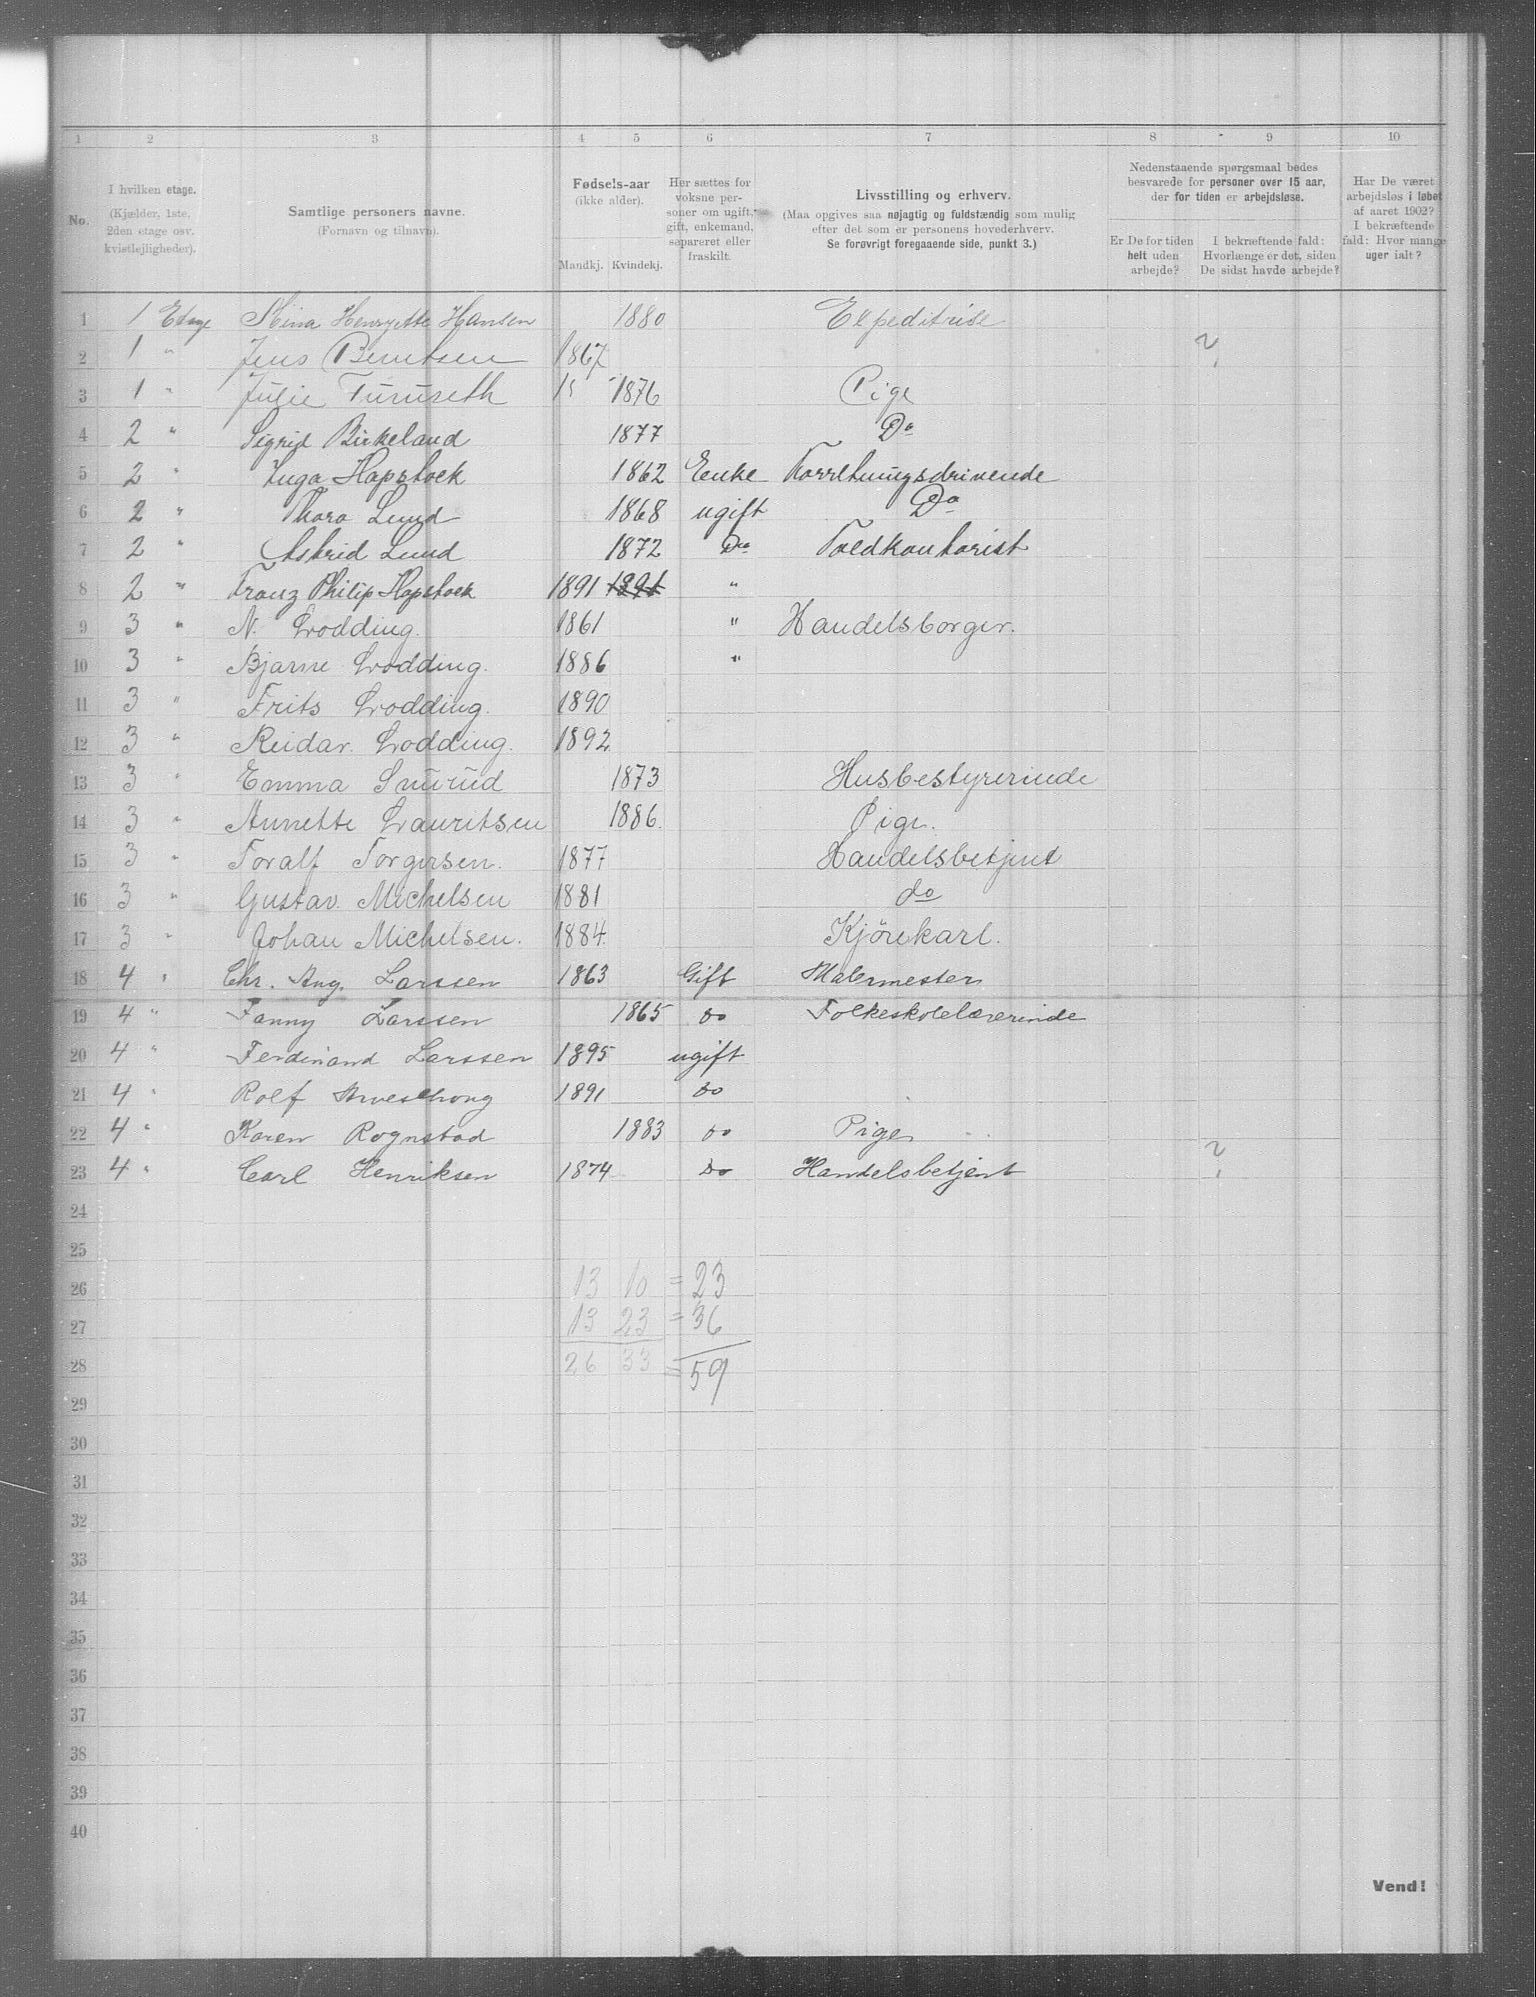 1 2 3 4 5 6 7 8 9 10
No.
I hvilken etage.
(Kjælder, 1ste,
2den etage osv.
kvistlejligheder).
Samtlige personers navne.
(Fornavn og tilnavn).
Fødsels-aar
(ikke alder).
Mandkj. Kvindekj.
Her sættes for
voksne per-
soner om ugift,
gift, enkemand,
separeret eller
fraskilt.
Livsstilling og erhverv.
(Maa opgives saa nøjagtig og fuldstændig som mulig
efter det som er personens hovederhverv.
Se forøvrigt foregaaende side, punkt 3.)
Nedenstaaende spørgsmaal bedes
besvarede for personer over 15 aar,
der for tiden er arbejdsløse.
Er De for tiden
helt uden
arbejde?
I bekræftende fald:
Hvorlænge er det, siden
De sidst havde arbejde?
Har De været
arbejdsløs i løbet
af aaret 1902?
I bekræftende
fald: Hvor mange
uger ialt?
1 1 Etage Henryette Hansen 1880 Expeditrise
2 1 " Jens Berntsen 1867 ?
3 1 " Julie Turuseth 1876 Pige
4 2 " Sigrid Birkeland 1877 Do
5 2 " Inga Hapstock 1862 Enke Forretningsdrivende
6 2 " Thora Lund 1868 ugift Do
7 2 " Astrid Lund 1872 Do Toldkontorist
8 2 " Franz Philip Hapstock 1891 1891 "
9 3 " N. Lrodding. 1861 " Handelsborger.
10 3 " Bjarne Lrodding. 1886 "
11 3 " Frits Lrodding. 1890
12 3 " Reidar. Lrodding. 1892
13 3 " Emma Snurud 1873 Husbestyrerinde
14 3 " Annette Lauritsen 1886. Pige.
15 3 " Toralf Torgersen. 1877 Handelsbetjent
16 3 " Gustav. Michelsen 1881 do
17 3 " Johan Michelsen. 1884. Kjörekarl.
18 4 " Chr. Aug. Larssen 1863 Gift Malermester
19 4 " Fanny Larssen 1865 Do Folkeskolelærerinde
20 4 " Ferdinand Larssen 1895 ugift
21 4 " Rolf 1891 Do
22 4 " Karen Rognstad 1883 Do Pige
23 4 " Carl Henriksen 1874 Do Handelsbetjent ?
24
25
26 13 10 = 23
27 13 23 = 36
28 26 33 = 59
29
30
31
32
33
34
35
36
37
38
39
40
Vend!